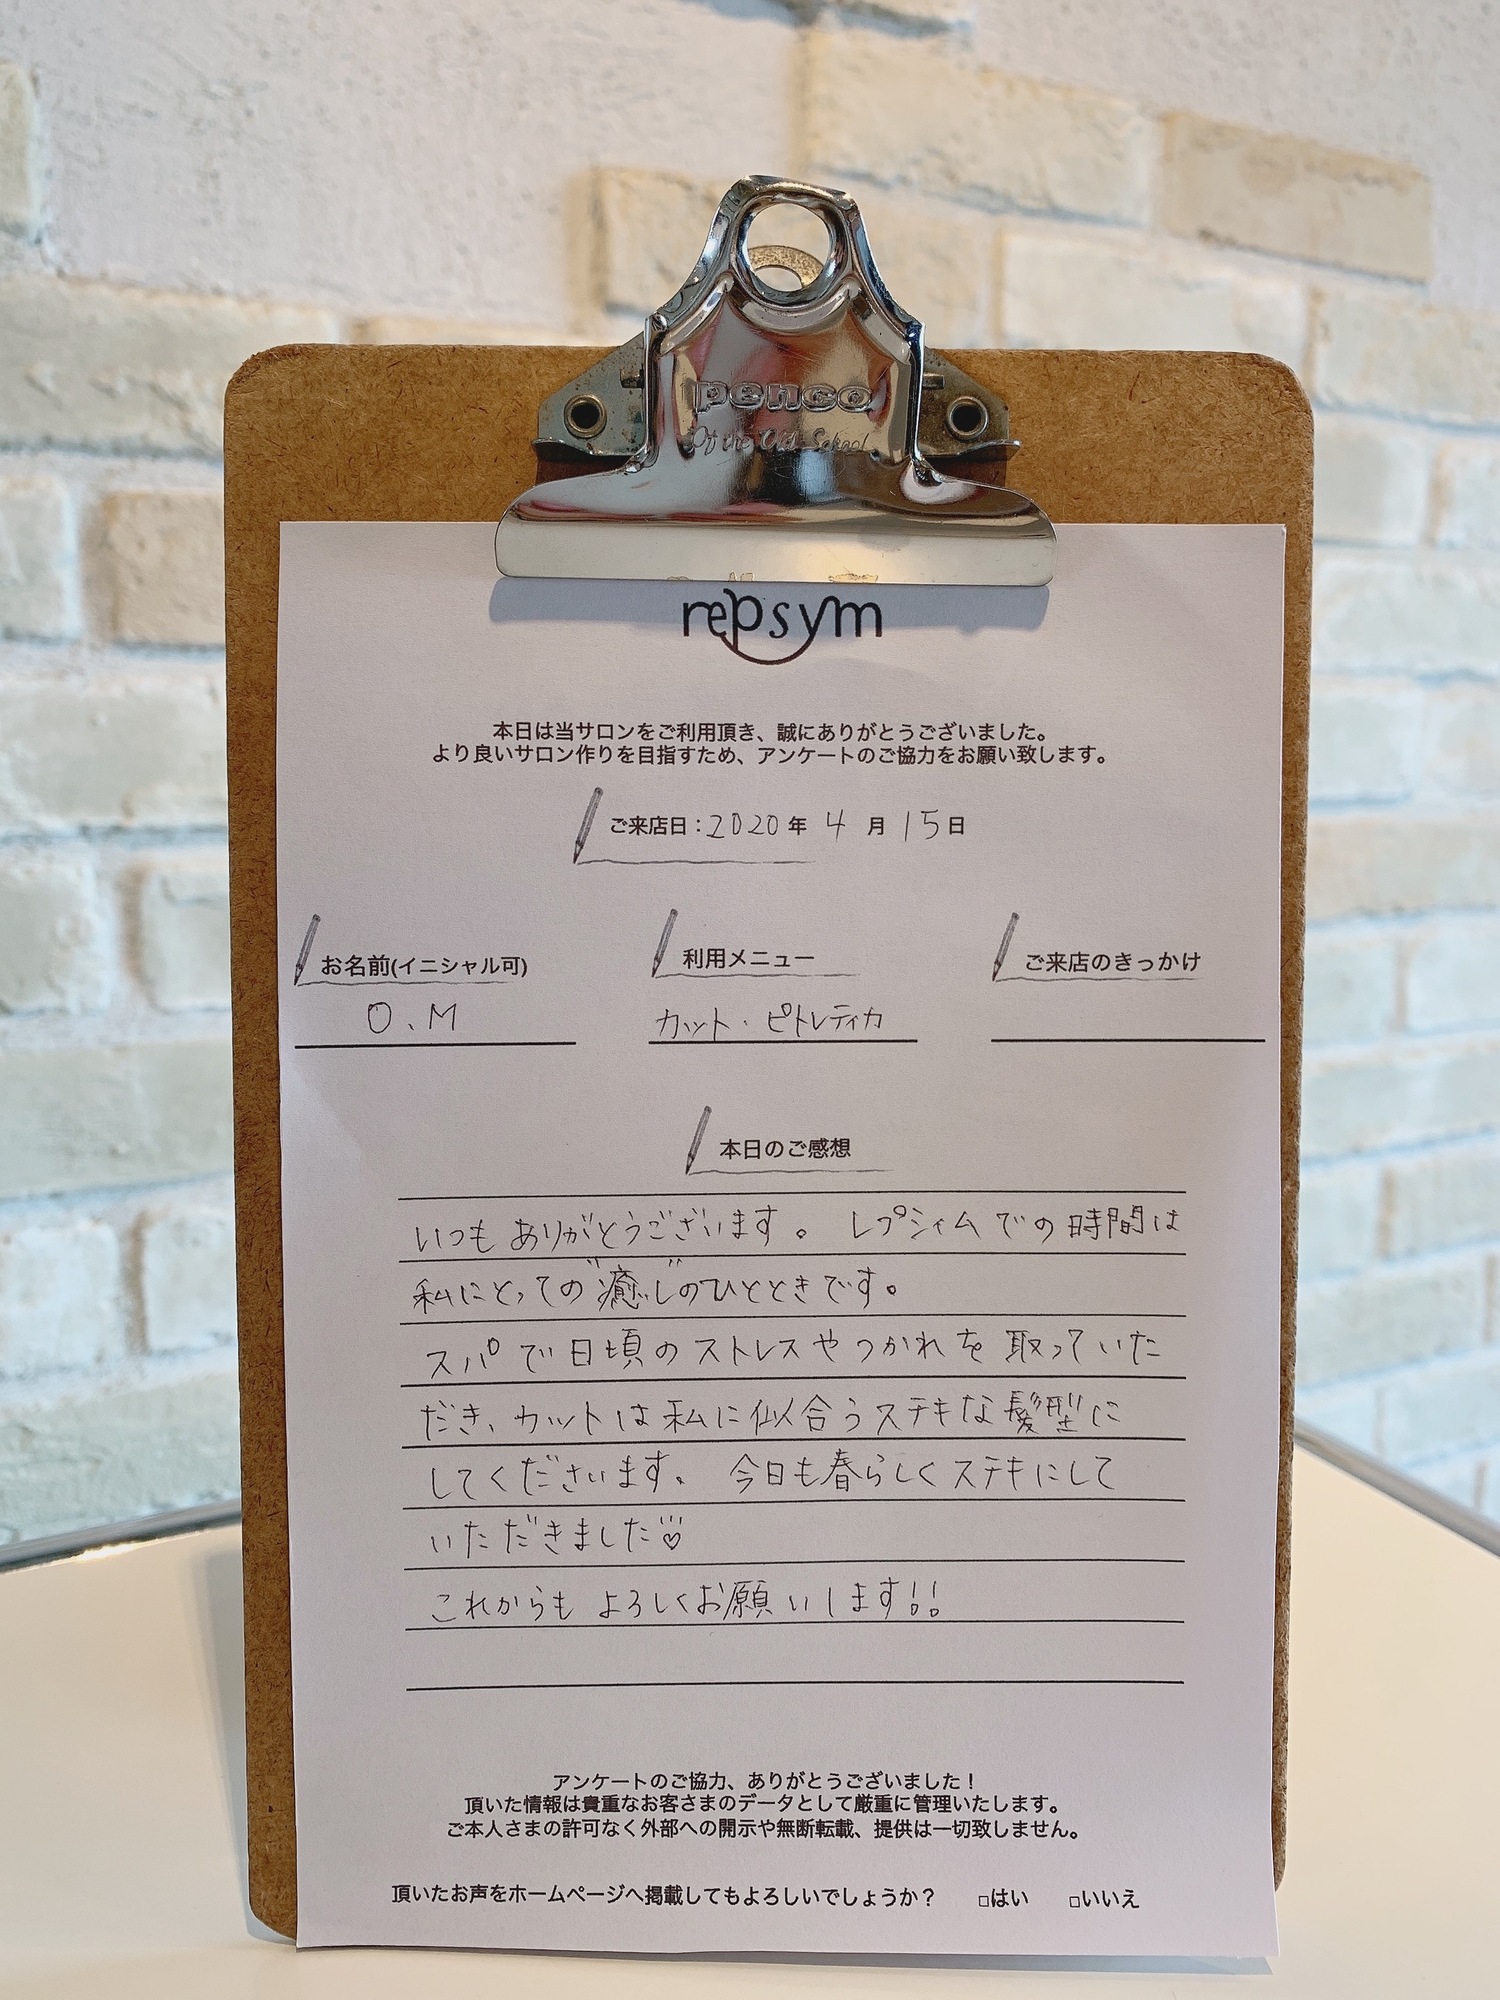 penco
Of the Old School
repsym
本日は当サロンをご利用頂き、誠にありがとうございました。
より良いサロン作りを目指すため、アンケートのご協力をお願い致します。
ご来店日：2020年 4月 15日
お名前(イニシャル可)
O.M
利用メニュー
カット・ピトレティカ
ご来店のきっかけ
本日のご感想
いつもありがとうございます。 レプシィムでの時間は
私にとっての"癒し"のひとときです。
スパで日頃のストレスやつかれを取っていた
だき、カットは私に似合うステキな髪型に
してくださいます。 今日も春らしくステキにして
いただきました♡
これからもよろしくお願いします!!
アンケートのご協力、ありがとうございました！
頂いた情報は貴重なお客さまのデータとして厳重に管理いたします。
ご本人さまの許可なく外部への開示や無断転載、提供は一切致しません。
頂いたお声をホームページへ掲載してもよろしいでしょうか？ □はい □いいえ